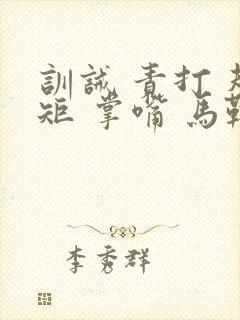 訓誡 責打 規
矩 掌嘴 馬鞭
李秀群